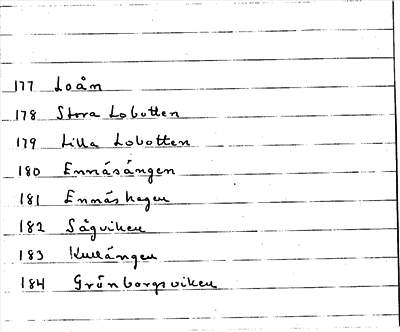 177 Loån
178 Stora Lobotten
179 Lilla Lobotten
180 Ennäsängen
181 Ennäshagen
182 Sågviken
183 Kullängen
184 Grönborgsviken